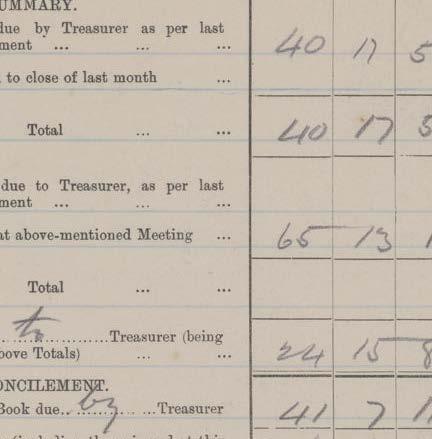 SUMMARY.
due by Treasurer as per last
ment ... ... ... 40 17 5
to close of last month ...
Total ... ... 40 17 5
due to Treasurer, as per last
ment ... ... ...
at above-mentioned Meeting ... 65 13 1
Total ... ...
to Treasurer (being
bove Totals) ... ... 24 15 8
ONCILEMENT.
Book due by Treasurer 41 7 11